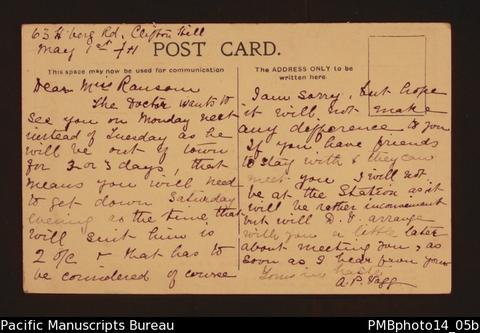 63 Berg Rd. Clifton Hill
May 1st
POST CARD.
This space may now be used for communication
The ADDRESS ONLY to be
written here.
Dear Miss Ransom
The Doctor wants to
see you on Monday next
instead of Tuesday as he
will be out of town
for 2 or 3 days, that
means you will need
to get down Saturday
evening as the time that
will suit him is
2 o/c & that has to
be considered of course
I am sorry, but hope
it will not make
any difference to you
If you have friends
to stay with & they can
meet you I will not
be at the Station as it
will be rather inconvenient
but will D.V. arrange
with you a little later
about meeting you, as
soon as I hear from you
Yours in haste
A.P.
Pacific Manuscripts Bureau
PMBphoto14_05b